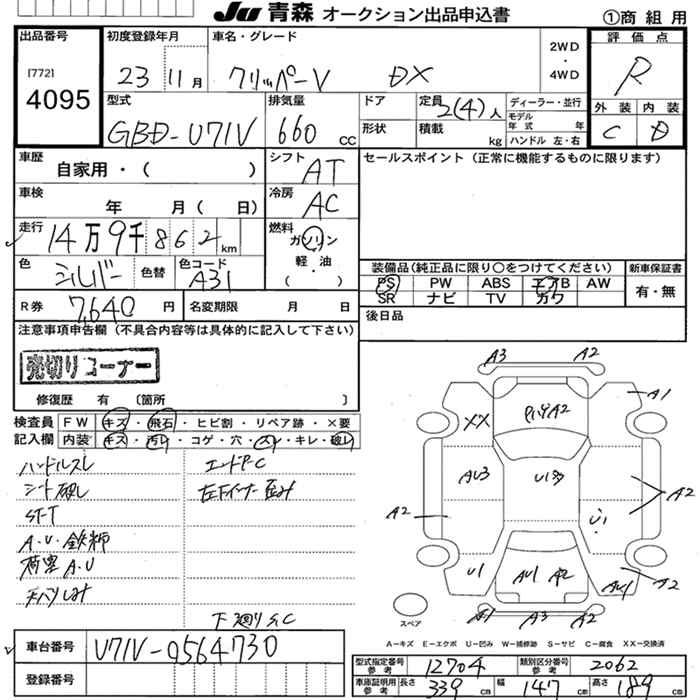 JU 青森 オークション出品申込書
①商 組 用
出品番号
[772]
4095
初度登録年月
23 11月
車名・グレード
クリッパーV DX
2WD
・
4WD
評 価 点
R
外 装 内 装
C D
型式
GBD-U71V
排気量
660 cc
ドア
形状
定員
2(4)人
積載
kg
ディーラー・並行
モデル
年 式 年
ハンドル 左・右
車歴
自家用・( )
シフト
AT
セールスポイント(正常に機能するものに限ります)
車検
年 月( 日)
冷房
AC
走行
14万9千862km
燃料
ガソリン
軽・油
( )
色
シルバー
色替
色コード
A31
装備品(純正品に限り○をつけてください)
新車保証書
PS PW ABS エアB AW
SR ナビ TV カワ
有・無
R券
7,640 円
名変期限 月 日
後日品
注意事項申告欄(不具合内容等は具体的に記入して下さい)
売切りコーナー
修復歴 有 〔箇所 〕
検査員
記入欄
FW キズ・飛石・ヒビ割・リペア跡・×要
内装 キズ・汚レ・コゲ・穴・スレ・キレ・破レ
ハンドルスレ エンドP-C
シート破レ
ST-T
A・U・鉄粉
荷室A・U
下廻りS,C
車台番号
U71V-0564730
登録番号
A3 A2
XX A1
AU3 U1
A2 A2
U1 AU1 A2 AU1 A2
A1 A3 A2
スペア
A-キズ E-エクボ U-凹み W-補修跡 S-サビ C-腐食 XX-交換済
型式指定番号
参考
12704
類別区分番号
参考
2062
車庫証明用
参考
長さ 339cm 幅 147cm 高さ 189cm